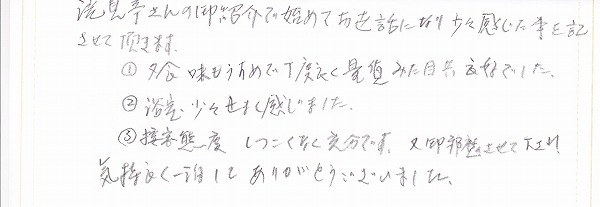 さんの御紹介で始めてお世話になり少々感じた事を記
させて頂きます。
① 夕食 味もうすめで丁度良く量質みた目共 充分でした。
② 浴室 少々せまく感じました。
③ 接客態度 しつこくなく充分です。又御邪魔させて下さい
気持良く一泊して ありがとうございました。